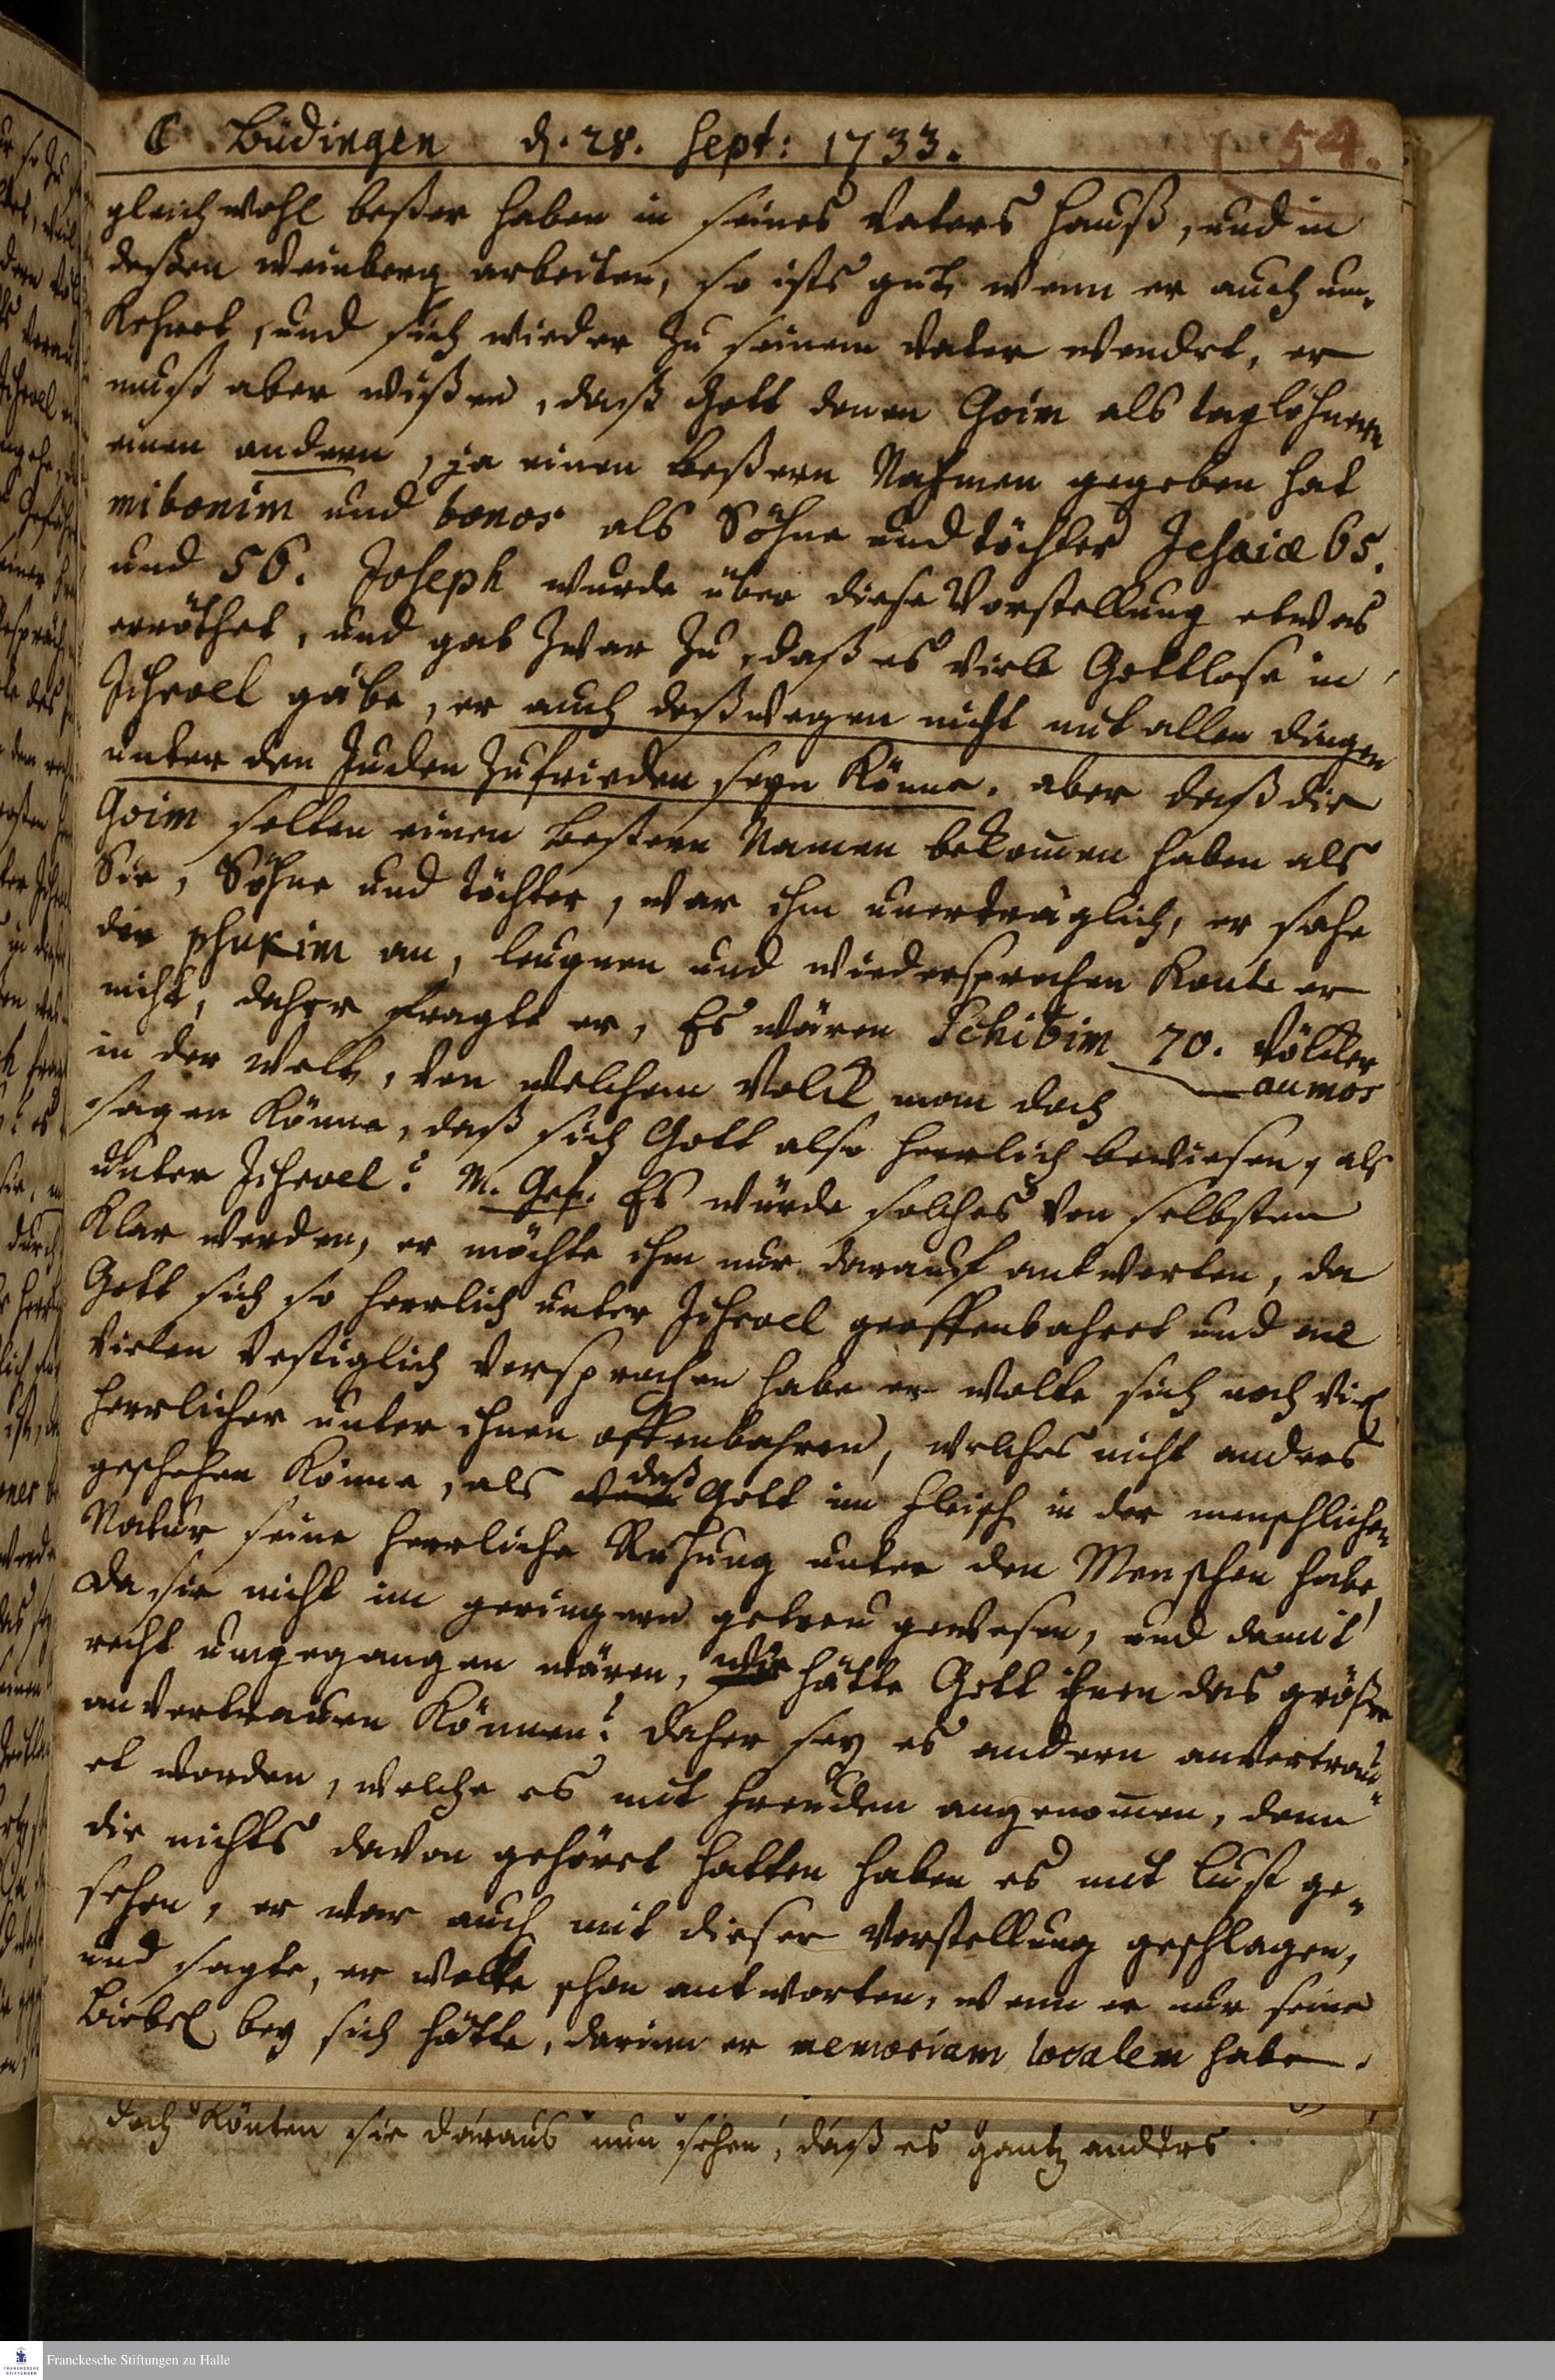 ☾ Büdingen d. 28. Sept: 1733. 54.
gleich wohl beßer haben in seines Vaters Hauß, und in
deßen Weinberg arbeiten, so ists gut, wenn er auch um-
kehret, und sich wieder zu seinem Vater wendet, er
muß aber wißen, daß Gott denen Goim als taglöhnern
einen andern, ja einen beßern Nahmen gegeben hat
mibonim und bonos als Söhne und töchter Jesaiæ 65.
und 56. Joseph wurde über diese Vorstellung etwas
erröthet, und gab zwar zu, daß es viele Gottlose in
Jisroel gäbe, er auch deßwegen nicht mit allen dingen
unter den Juden zufrieden seyn könne. aber daß die
Goim solten einen beßern Namen bekom̅en haben als
Sie, Söhne und töchter, war ihm unerträglich, er sahe
die psukim an, leugnen und wiedersprechen konte er
nicht, daher fragte er, Es wären Schibim 70. Völcker
aumos
in der Welt, von welchem Volck man doch
sagen könne, daß sich Gott also herrlich bewiesen, als
unter Jisroel? M. Ges. Es würde solches von selbsten
klar werden, er möchte ihm nur darauf antworten, da
Gott sich so herrlich unter Jisroel geoffenbahret und
vielen vestiglich versprochen habe er wolte sich noch viel
herrlicher unter ihnen offenbahren, welches nicht anders
geschehen könne, als daß Gott im fleisch in der menschlichen
Natur seine herrliche Ruhung unter den Menschen habe,
da sie nicht im geringern getreu gewesen, und damit
recht umgegangen wären, wie hätte Gott ihnen das größre
anvertrauen können? daher sey es andern anvertrau-
et worden, welche es mit freuden angenom̅en, denn
die nichts davon gehöret hatten haben es mit lust ge-
sehen, er war auch mit dieser Vorstellung geschlagen,
und sagte, er wolte schon antworten, wenn er nur seine
Biebel bey sich hätte, darinn er memoriam localem habe.
doch könten sie daraus nun sehen, daß es gantz anders
Franckesche Stiftungen zu Halle